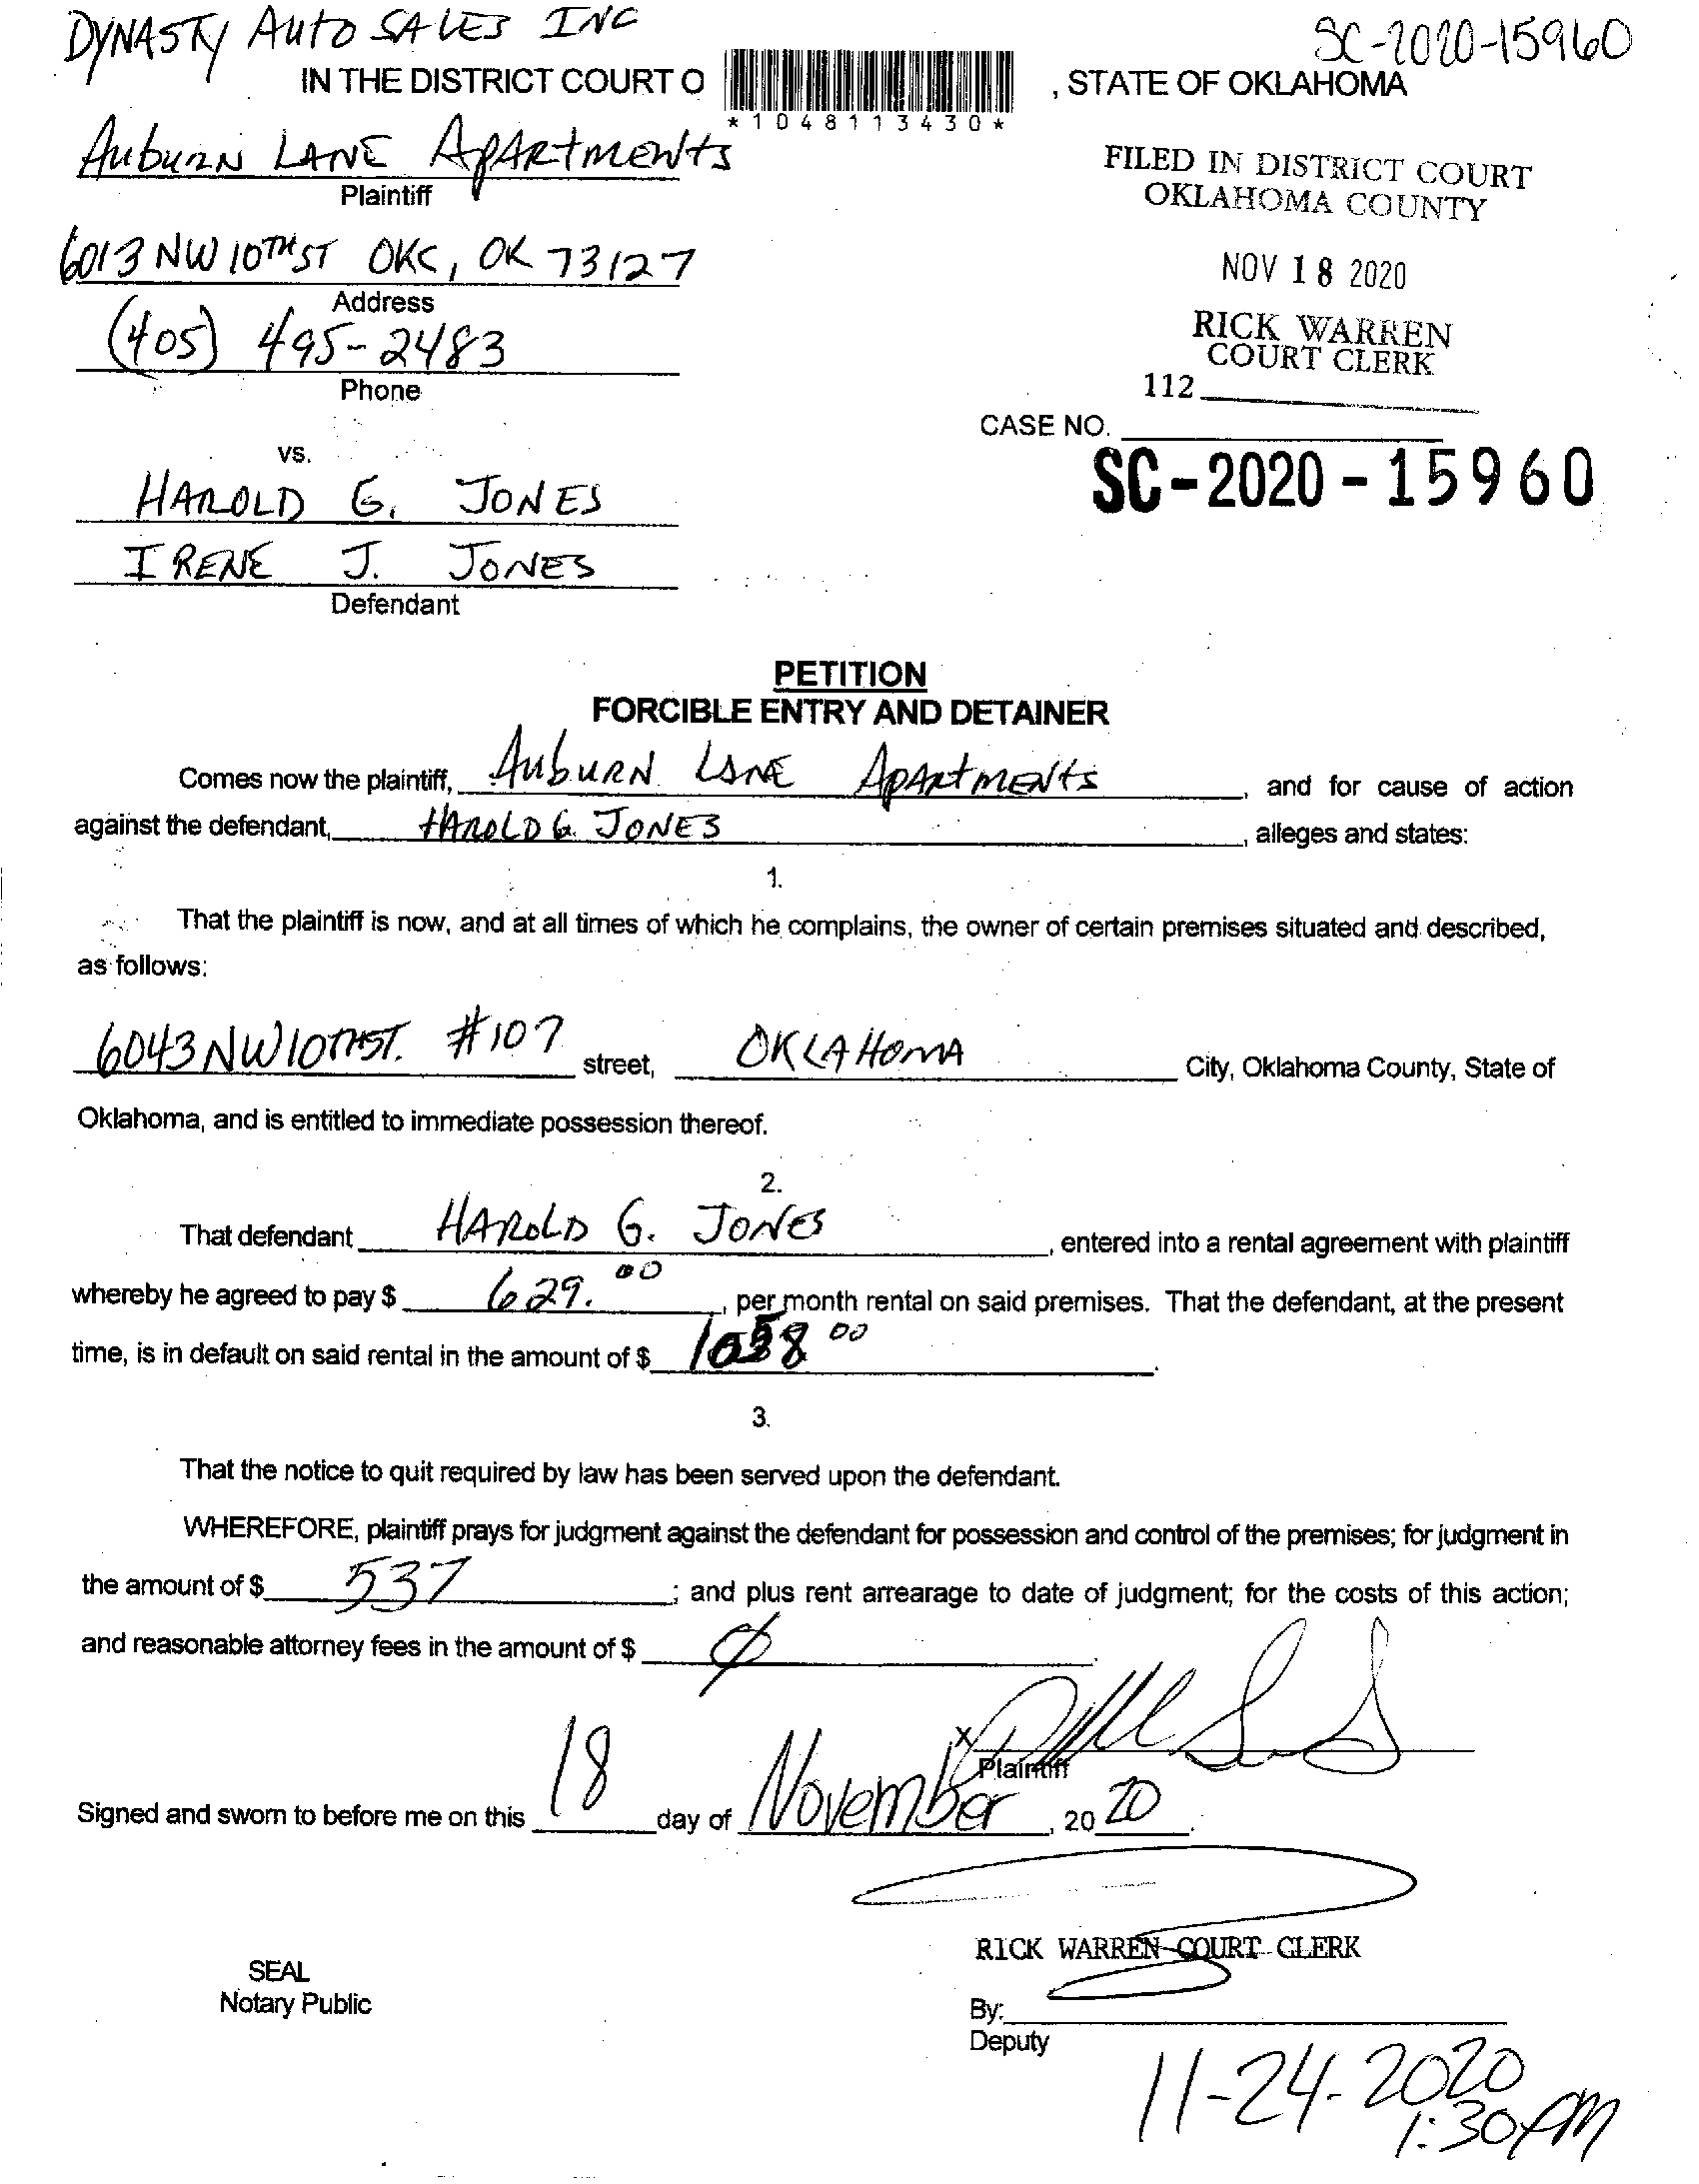 DYNASTY AUTO SALES INC
SC-2020-15960
IN THE DISTRICT COURT O , STATE OF OKLAHOMA
*1048113430*
AUBURN LANE APARTMENTS
Plaintiff
FILED IN DISTRICT COURT
OKLAHOMA COUNTY
6013 NW 10TH ST OKC, OK 73127
Address
NOV 18 2020
(405) 495-2483
Phone
RICK WARREN
COURT CLERK
112
CASE NO.
SC-2020-15960
vs.
HAROLD G. JONES
IRENE J. JONES
Defendant
PETITION
FORCIBLE ENTRY AND DETAINER
Comes now the plaintiff, AUBURN LANE APARTMENTS, and for cause of action
against the defendant, HAROLD G. JONES, alleges and states:
1.
That the plaintiff is now, and at all times of which he complains, the owner of certain premises situated and described,
as follows:
6043 NW 10TH ST. #107 street, OKLAHOMA City, Oklahoma County, State of
Oklahoma, and is entitled to immediate possession thereof.
2.
That defendant HAROLD G. JONES, entered into a rental agreement with plaintiff
whereby he agreed to pay $ 629.00, per month rental on said premises. That the defendant, at the present
time, is in default on said rental in the amount of $ .
3.
That the notice to quit required by law has been served upon the defendant.
WHEREFORE, plaintiff prays for judgment against the defendant for possession and control of the premises; for judgment in
the amount of $ 537; and plus rent arrearage to date of judgment; for the costs of this action;
and reasonable attorney fees in the amount of $ ∅.
X
Plaintiff
Signed and sworn to before me on this 18 day of November, 20 20.
RICK WARREN COURT CLERK
SEAL
Notary Public
By:
Deputy
11-24-2020
1:30PM